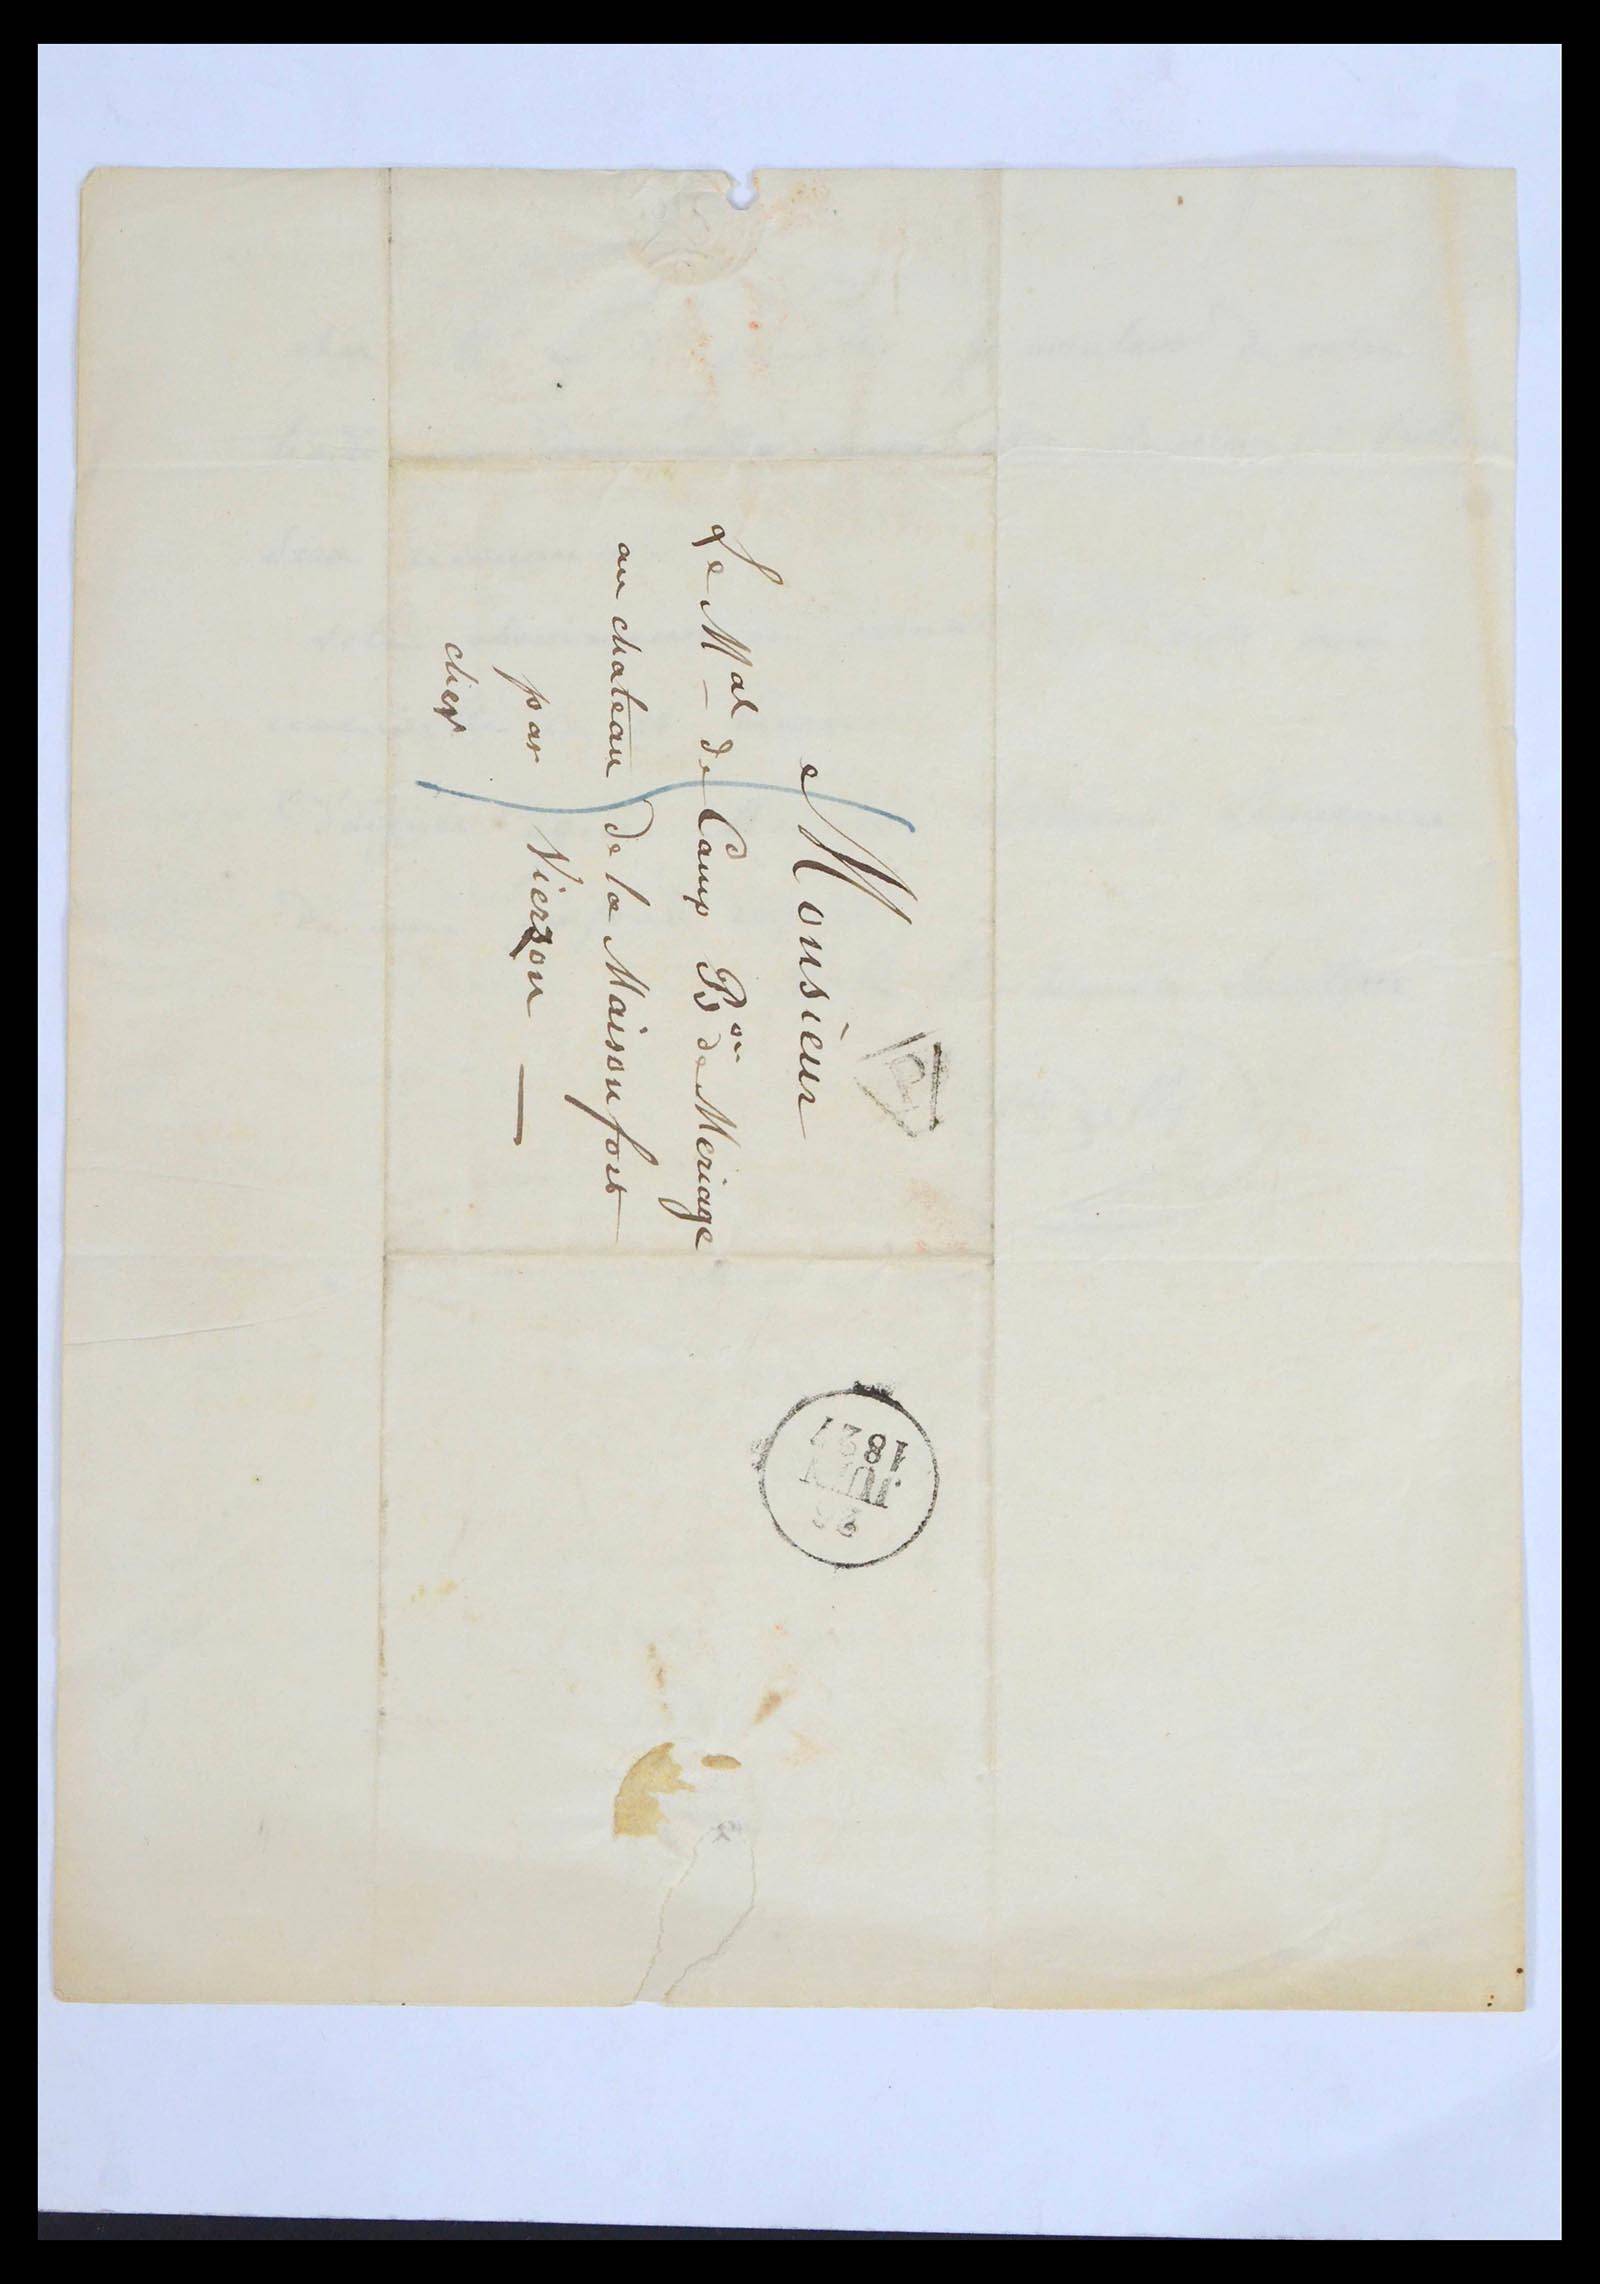 Monsieur
Le Mal de Camp Bon de Meriage
au chateau de la Maisonfort
par Vierzon
cher
P
26
JUIN
1827